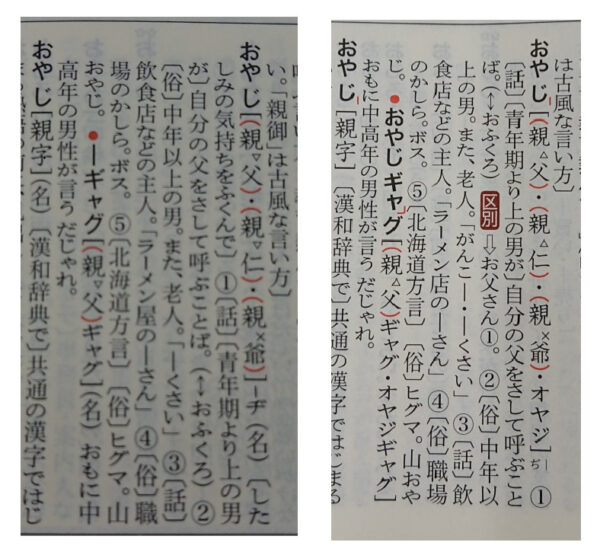 い。「親御」は古風な言い方〕
おやじ[(親▽父)・(親▽仁)・(親×爺)]―ヂ(名)〔した
しみの気持ちをふくんで〕①〔話〕〔青年期より上の男
が〕自分の父をさして呼ぶことば。(↔おふくろ)②
〔俗〕中年以上の男。また、老人。「―くさい」③〔話〕
飲食店などの主人。「ラーメン屋の―さん」④〔俗〕職
場のかしら。ボス。⑤〔北海道方言〕〔俗〕ヒグマ。山
おやじ。●―ギャグ[(親▽父)ギャグ](名)おもに中
高年の男性が言う だじゃれ。
おやじ[親字](名)〔漢和辞典で〕共通の漢字ではじ
は古風な言い方〕
おやじ[(親△父)・(親△仁)・(親×爺)・オヤジ]―ぢ ①
〔話〕〔青年期より上の男が〕自分の父をさして呼ぶこと
ば。(↔おふくろ)区別⇨お父さん①。②〔俗〕中年以
上の男。また、老人。「がんこ―・―くさい」③〔話〕飲
食店などの主人。「ラーメン店の―さん」④〔俗〕職場
のかしら。ボス。⑤〔北海道方言〕〔俗〕ヒグマ。山おや
じ。●おやじギャグ[(親△父)ギャグ・オヤジギャグ]
おもに中高年の男性が言う だじゃれ。
おやじ[親字]〔漢和辞典で〕共通の漢字ではじまる